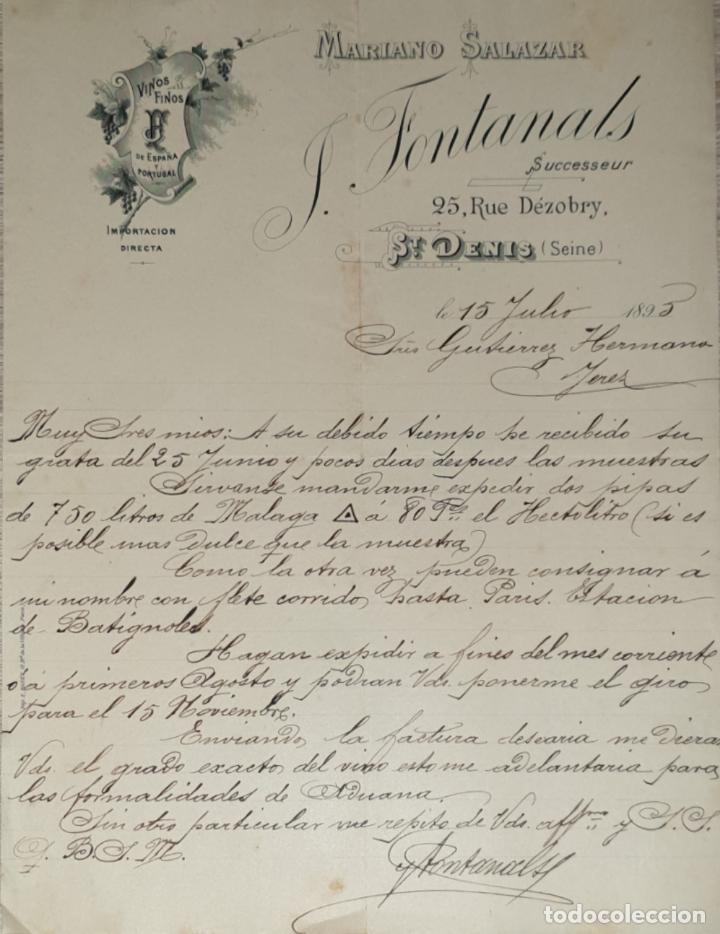 MARIANO SALAZAR
VINOS
FINOS
DE ESPAÑA
Y
PORTUGAL
IMPORTACION
DIRECTA
J. Fontanals
Successeur
25, Rue Dézobry,
ST DENIS (Seine)
le 15 Julio 1895
Sres Gutierrez Hermanos
Jerez
Muy Sres mios: A su debido tiempo he recibido su
grata del 25 Junio y pocos dias despues las muestras
Sirvanse mandarme expedir dos pipas
de 750 litros de Malaga á 80 Pts el Hectolitro (si es
posible mas Dulce que la muestra)
Como la otra vez pueden consignar á
mi nombre con flete corrido hasta Paris. Estacion
de Batignoles.
Hagan expidir a fines del mes corriente
o á primeros Agosto y podran Vds. ponerme el giro
para el 15 Noviembre.
Enviando la factura desearia me dieran
Vds. el grado exacto del vino esto me adelantaria para
las formalidades de Aduana.
Sin otro particular me repito de Vds. affmo y S. S.
Q. B. S. M.
J Fontanals
todocoleccion